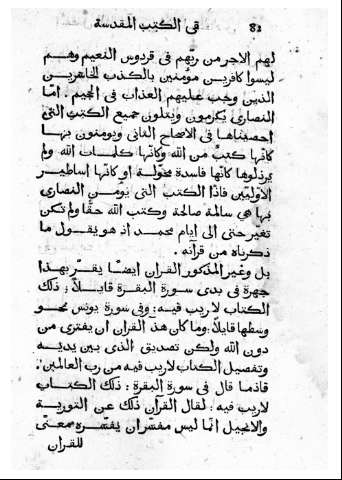 82 في الكتب المقدسة
لهم الاجر من ربّهم في فردوس النعيم وهم
ليسوا كافرين مؤمنين بالكذب كالخاسرين
الذين وجب عليهم العذاب في الجحيم. امّا
النصاري يكرمون ويتلون جميع الكتب التي
احصيناها في الاصحاح الثاني ويومنون بها
كانّها كتبٌ من الله وكانّها كلمات الله ولم
يرذلوها كانّها فاسدة محوّلة او كانّها اساطير
الاوّليين فاذا الكتب التي يؤمن النصاري
بها هي سالمة صالحة وكتب الله حقّا ولم تكن
تغيّر حتي الي ايام محمد اذ هو يقول ما
ذكرناه من قرآنه.
بل وغير المذكور القران ايضًا يقرّ بهذا
جهرة في بدي سورة البقرة قايلاً: ذلك
الكتاب لاريب فيه: وفي سورة يونس نحو
وسطها قايلاً: وما كان هذ القران ان يفتري من
دون الله ولكن تصديق الذي بين يديه
وتفصيل الكتاب لاريب فيه من رب العالمين:
فاذما قال في سورة البقرة: ذلك الكتاب
لاريب فيه: لقال القرآن ذلك عن التورية
والانجيل انما ليس مفسّران يفسّره بمعنّي
للقران